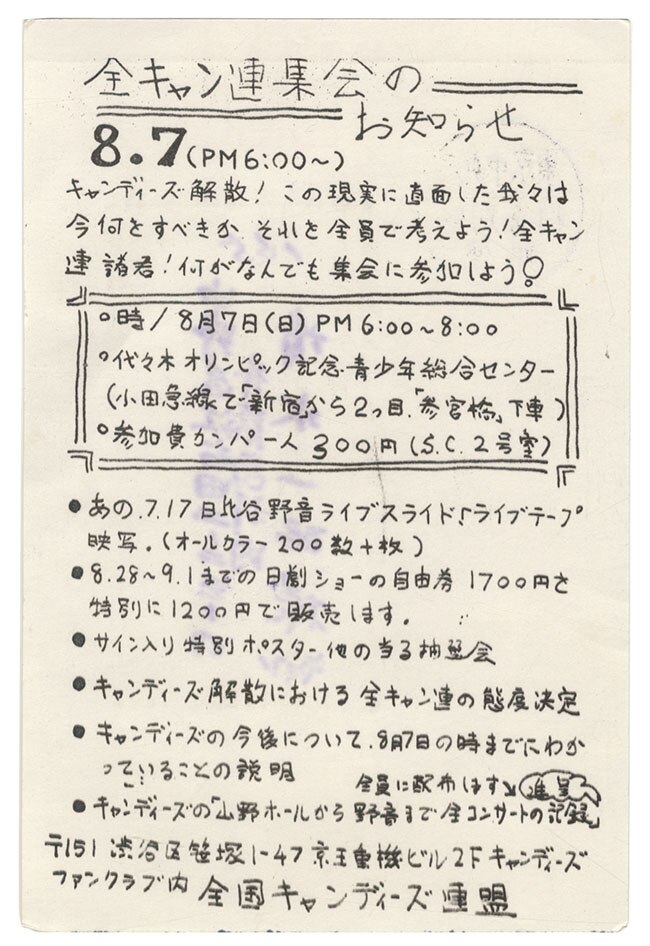 全キャン連集会の
お知らせ
8.7(PM6:00~)
キャンディーズ解散!この現実に直面した我々は
今何をすべきか、それを全員で考えよう!全キャン
連諸君!何がなんでも集会に参加しよう!
○時/8月7日(日)PM6:00~8:00
○代々木オリンピック記念青少年総合センター
(小田急線で「新宿」から2つ目、「参宮橋」下車)
○参加費カンパ一人300円(S.C.2号室)
●あの、7.17日比谷野音ライブスライド♪ライブテープ
映写。(オールカラー200数十枚)
●8.28~9.1までの日劇ショーの自由券1700円を
特別に1200円で販売します。
●サイン入り特別ポスター他の当る抽選会
●キャンディーズ解散における全キャン連の態度決定
●キャンディーズの今後について、8月7日の時までにわか
っていることの説明
全員に配布します 進呈
●キャンディーズの「山野ホールから野音まで全コンサートの記録」
〒151 渋谷区笹塚1-47 京王重機ビル2F キャンディーズ
ファンクラブ内 全国キャンディーズ連盟